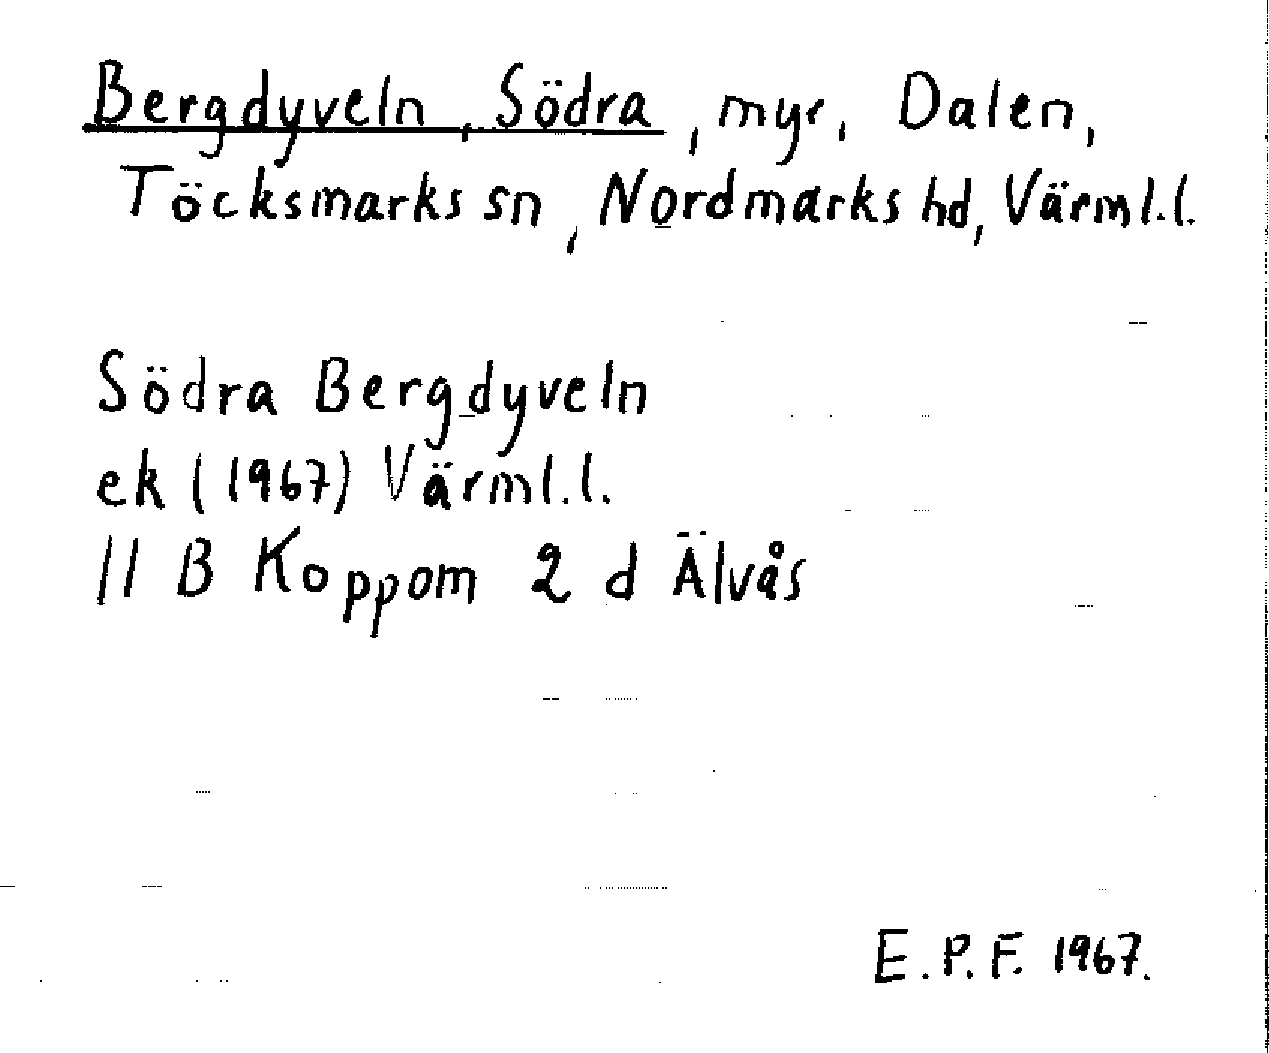 Bergdyveln, Södra, myr, Dalen,
Töcksmarks sn, Nordmarks hd, Värml.l.
Södra Bergdyveln
ek (1967) Värml.l.
11 B Koppom 2 d Älvås
E.P.F. 1967.